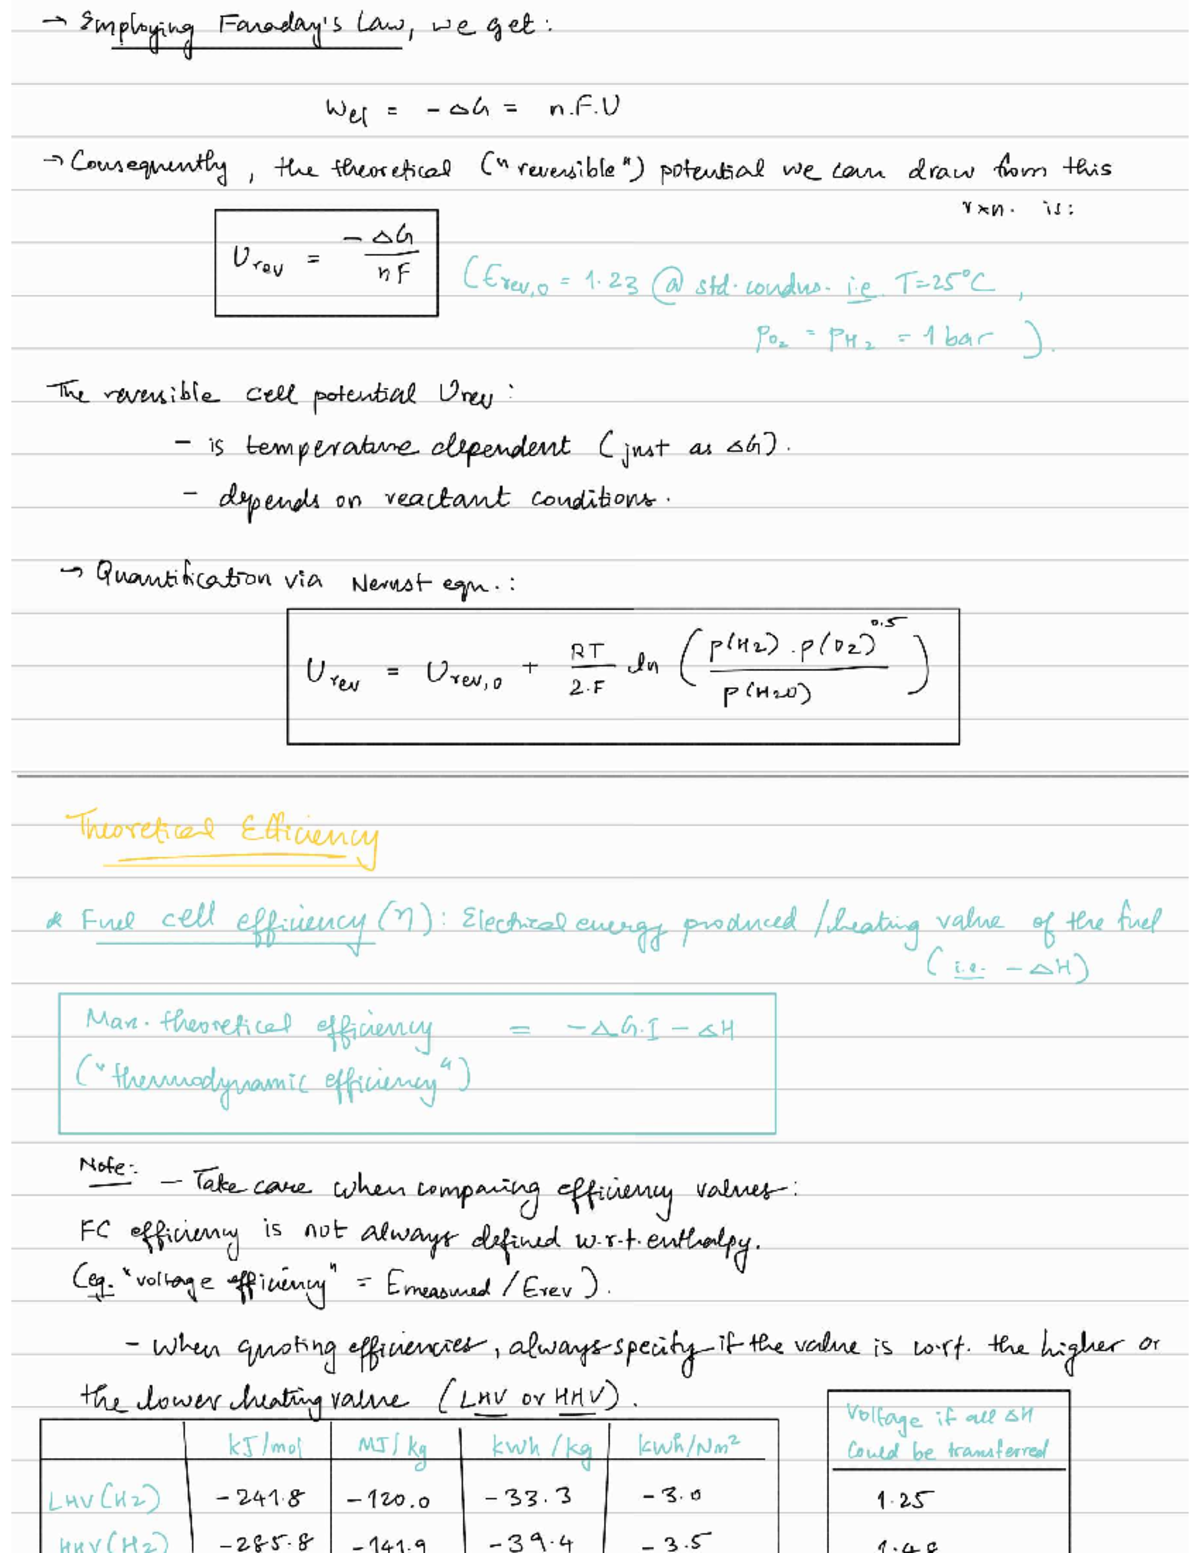 → Employing Faraday's Law, we get:
Wel = - ΔG = n.F.U
→ Consequently, the theoretical ("reversible") potential we can draw from this
rxn. is:
Urev = -ΔG / nF
(Erev,0 = 1.23 @ std. condns. i.e. T=25°C,
pO2 = pH2 = 1 bar ).
The reversible cell potential Urev:
- is temperature dependent (just as ΔG).
- depends on reactant conditions.
→ Quantification via Nernst eqn.:
Urev = Urev,0 + RT / 2.F ln ( p(H2) . p(O2)^0.5 / p(H2O) )
Theoretical Efficiency
* Fuel cell efficiency (η): Electrical energy produced / heating value of the fuel
(i.e. -ΔH)
Max. theoretical efficiency = -ΔG.I - ΔH
("thermodynamic efficiency")
Note: - Take care when comparing efficiency values:
FC efficiency is not always defined w.r.t. enthalpy.
(eg. "voltage efficiency" = Emeasured / Erev).
- When quoting efficiencies, always specify if the value is w.r.t. the higher or
the lower heating value (LHV or HHV).
Voltage if all ΔH
could be transferred
kJ/mol MJ/kg kWh/kg kWh/Nm2
LHV(H2) -241.8 -120.0 -33.3 -3.0 1.25
HHV(H2) -285.8 -141.9 -39.4 -3.5 1.48